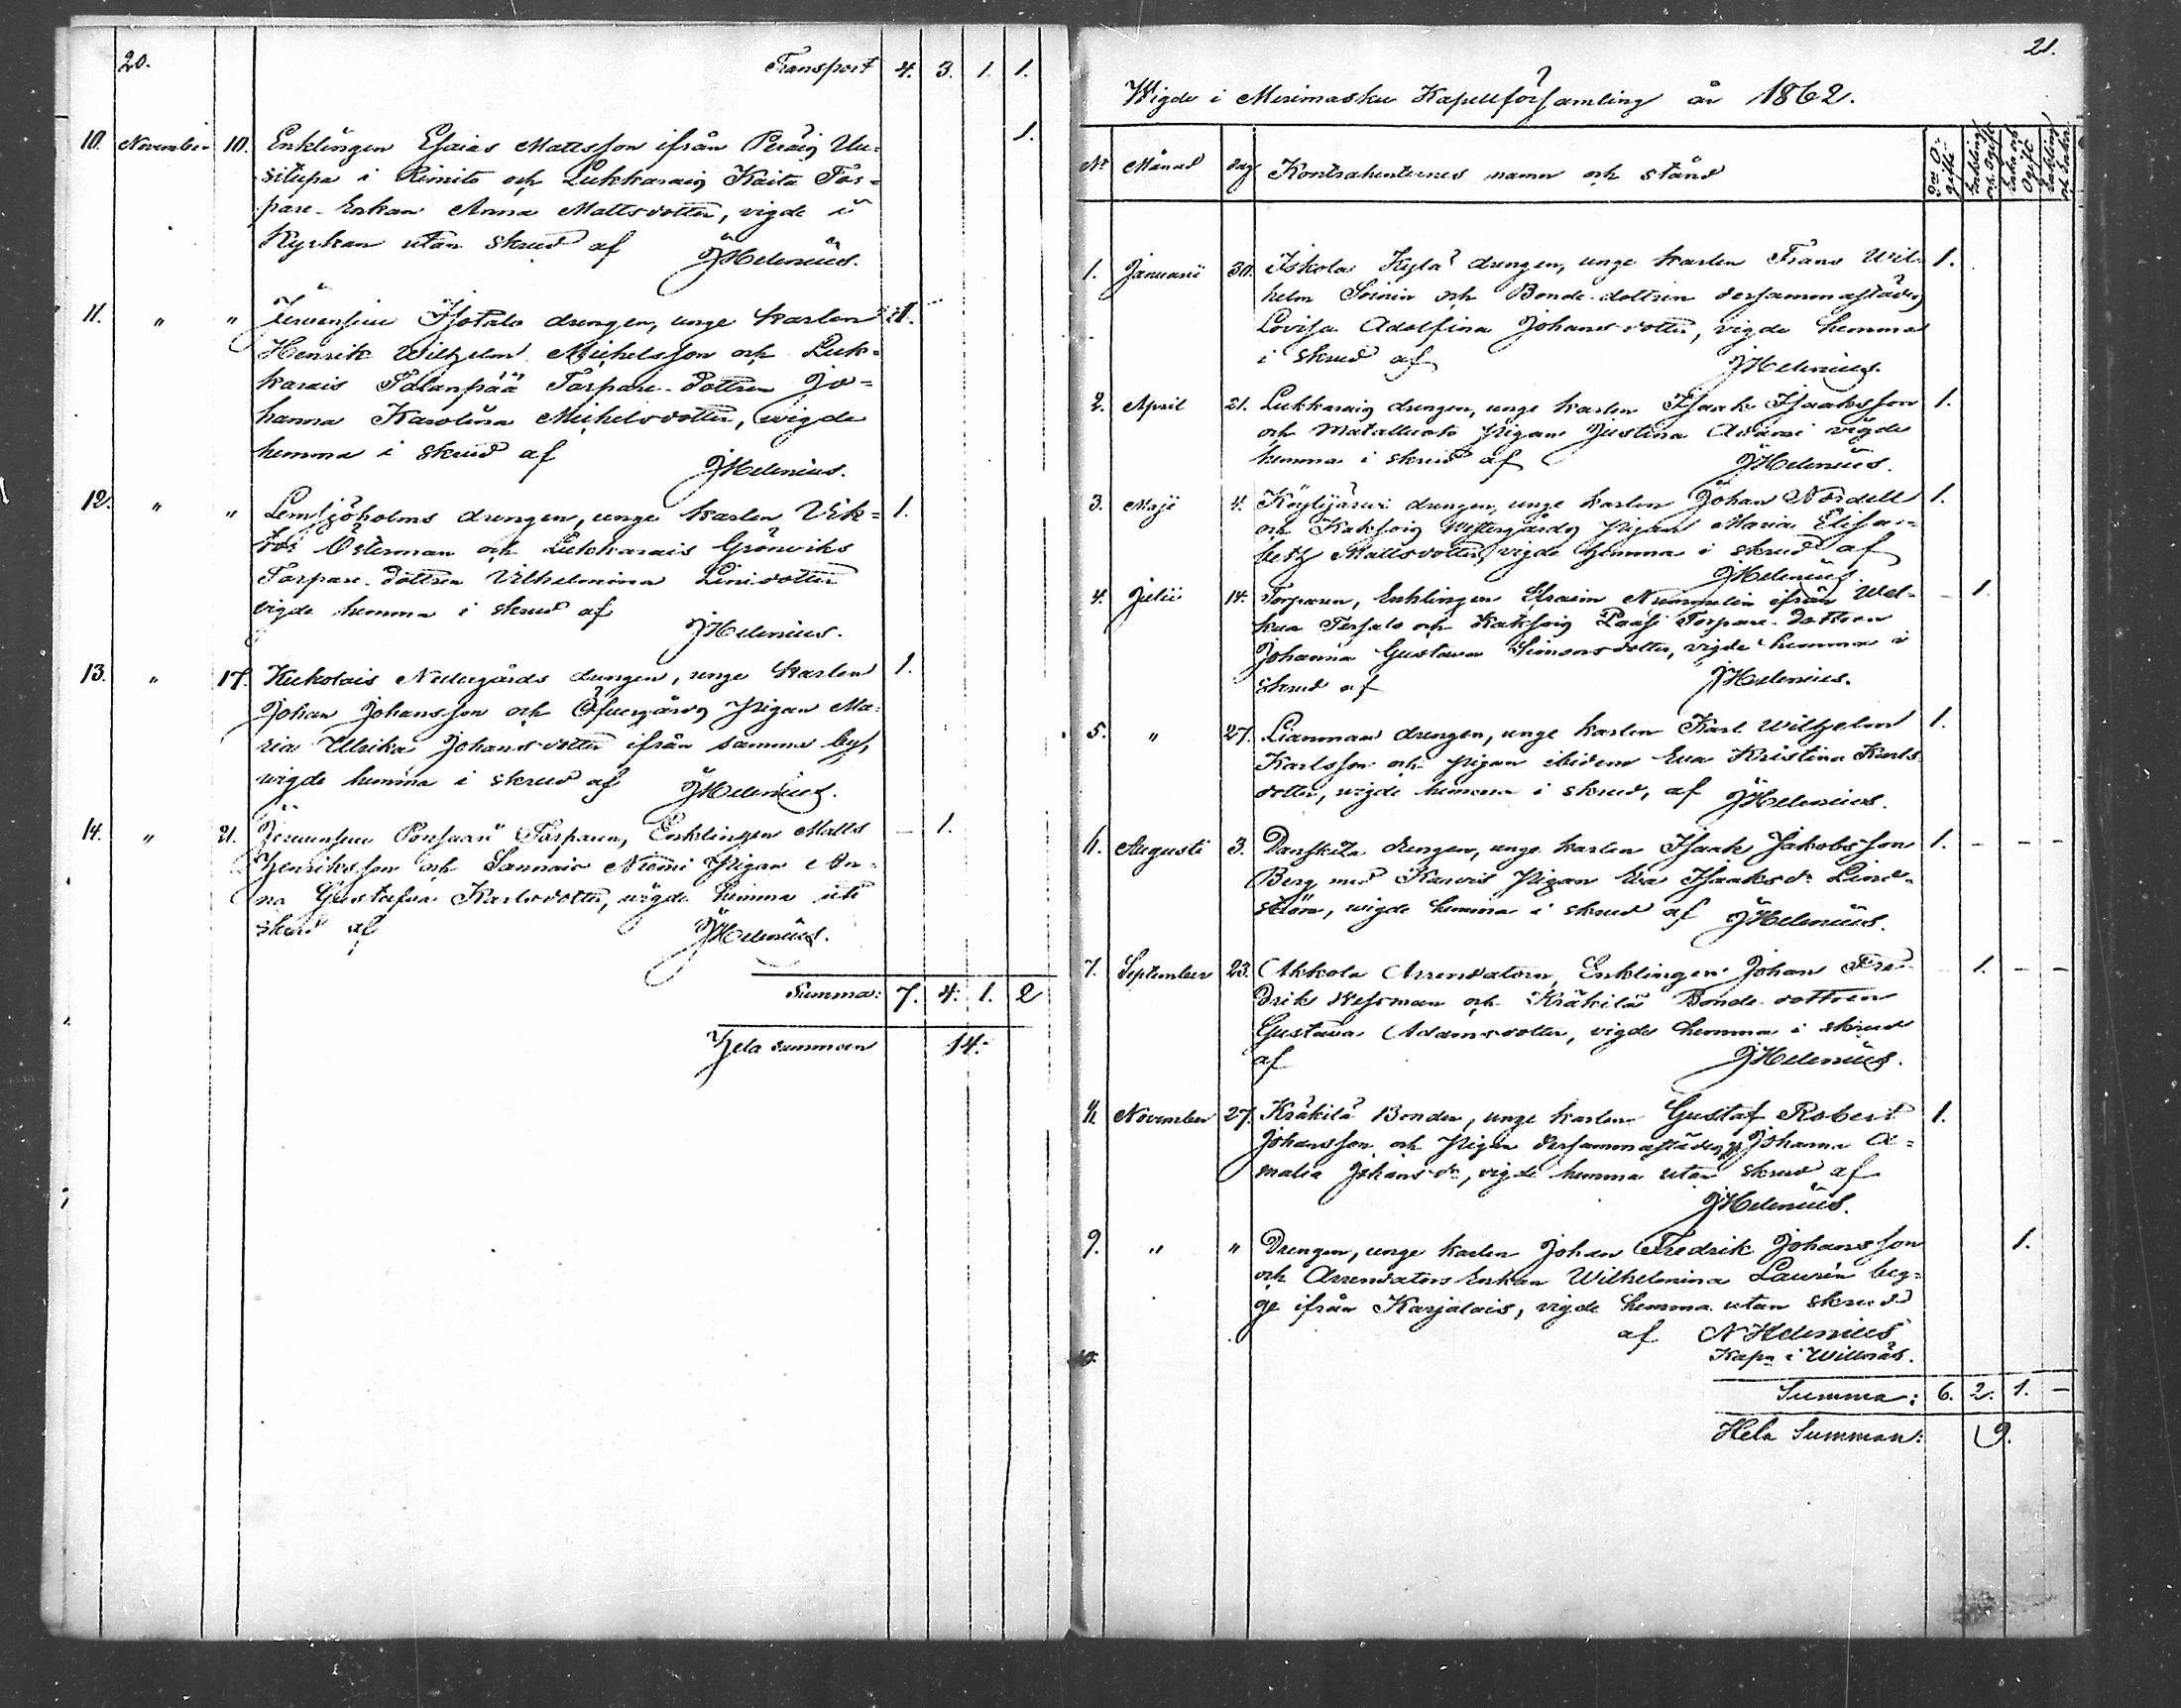 20. Transport 4. 3. 1. 1.
10. November 10. Enklingen Esaias Mattsson ifrån Peräis Uu= 1.
situpa i Rimito och Lukkarais Kaita Tor=
pare-Enkan Anna Mattsdotter, vigde i
Kyrkan utan skrud af JHelenius.
11. " " Isotalo drengen, unge karlen 1.
Henrik Wilhelm Michelsson och Luk=
karais Salanpää Torpare-dottren Jo=
hanna Karolina Michelsdotter, wigde
hemma i skrud af
JHelenius.
12. " " Lemsjöholms drengen, unge karlen Vik= 1.
tor Österman och Lukkarais Grönviks
Torpare-dottren Vilhelmina
vigde hemma i skrud af
JHelenius.
13. " 17. Kukolais Nedergårds drengen, unge karlen 1.
Johan Johansson och Öfvergårds Pigan Ma=
ria Ulrika Johansdotter ifrån samma by,
wigde hemma i skrud af JHelenius.
14. " 21. Torparen, Enklingen Matts — 1.
Henriksson och Sannais Niemi Pigan An=
na Gustafva Karlsdotter, wigde hemma uti
skrud af JHelenius.
Summa: 7. 4. 1. 2
Hela summan 14.
21.
Wigde i Merimasku Kapellförsamling år 1862.
No Månad dag Kontrahenternes namn och stånd
1. Januarii 30. Iskola Kylä drengen, unge karlen Frans Wil= 1.
helm Soinin och Bonde-dottren dersammastädes
Lovisa Adolfina Johansdotter, vigde hemma
i skrud af JHelenius.
2. April 21. Lukkarais drengen, unge karlen Isaak Isaaksson 1.
och Matalluoto Pigan Justina Adami vigde
hemma i skrud af JHelenius.
3. Maji 4. Köylijärvi drengen, unge karlen Johan Nordell 1.
och Kaksois Westergårds Pigan Maria Elisa=
beth Mattsdotter, vigde hemma i skrud af
JHelenius.
4. Julii 14. Torparen, Enklingen Efraim Nummelin ifrån Wel= — 1.
kua Tersalo och Kaksois Paasi Torpare-dottren
Johanna Gustava Simonsdotter, vigde hemma i
skrud af JHelenius.
5. " 27. drengen, unge karlen Karl Wilhelm 1.
Karlsson och pigan ibidem Eva Kristina Karls
dotter, wigde hemma i skrud, af JHelenius.
6. Augusti 3. Danskila drengen, unge karlen Isaak Jakobsson 1. - - -
Berg med Karvis Pigan Eva Isaaksdr Lind=
ström, wigde hemma i skrud af JHelenius.
7. September 23. Akkola Arrendatorn, Enklingen Johan Fre= — 1. - -
drik Wessman och Kräkilä Bonde-dottren
Gustava Adamsdotter, vigde hemma i skrud
af JHelenius.
8. November 27. Kräkilä Bonden, unge karlen Gustaf Robert 1.
Johansson och Pigan dersammastädes Johanna A=
malia Johansdr, vigde hemma utan skrud af
JHelenius.
9. " " Drengen, unge karlen Johan Fredrik Johansson 1.
och Arrendators Enkan Wilhelmina Laurén beg=
ge ifrån Karjalais, vigde hemma utan skrud
af N Helenius
Kapn i Willnäs.
10.
Summa: 6. 2. 1. —
Hela Summan: 9.